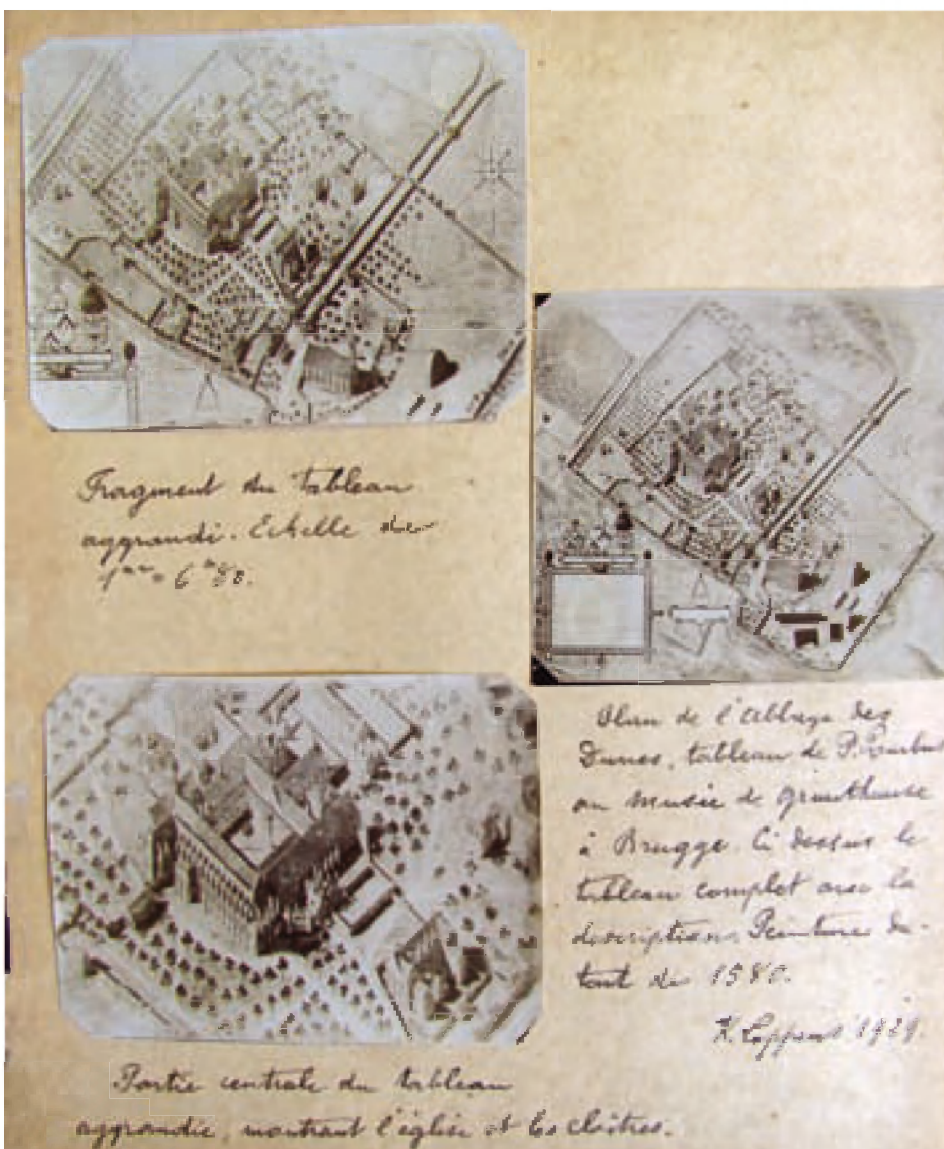 Fragment du tableau
aggrandi. Echelle de
1mm = 6m80.
Plan de l'abbaye des
Dunes, tableau de P. Pourbus
au musée de gruuthuuse
à Brugge. Ci dessus le
tableau complet avec la
description. Peinture da-
tant de 1580.
K. Loppens 1929.
Partie centrale du tableau
aggrandie, montrant l'église et les cloîtres.